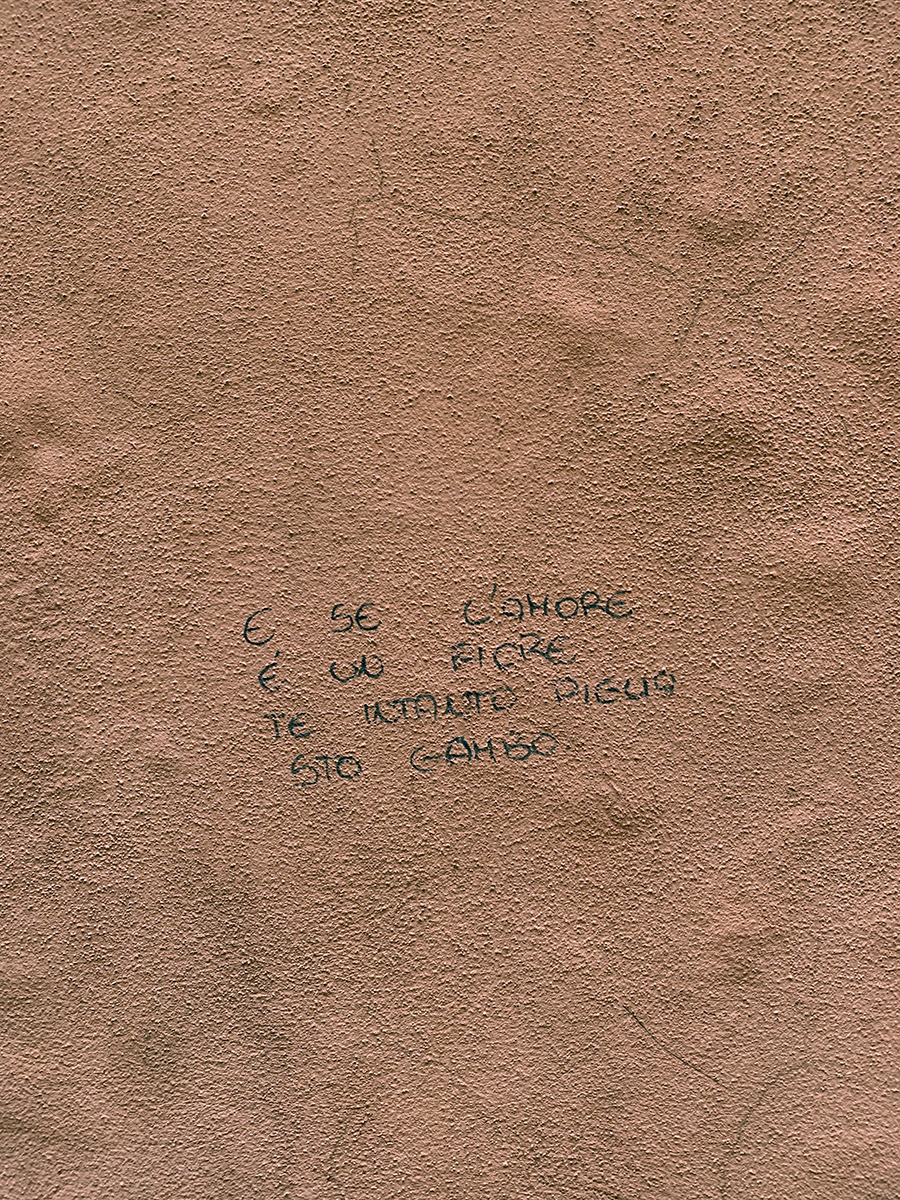 E SE L'AMORE
É UN FIORE
TE INTANTO PIGLIA
STO GAMBO